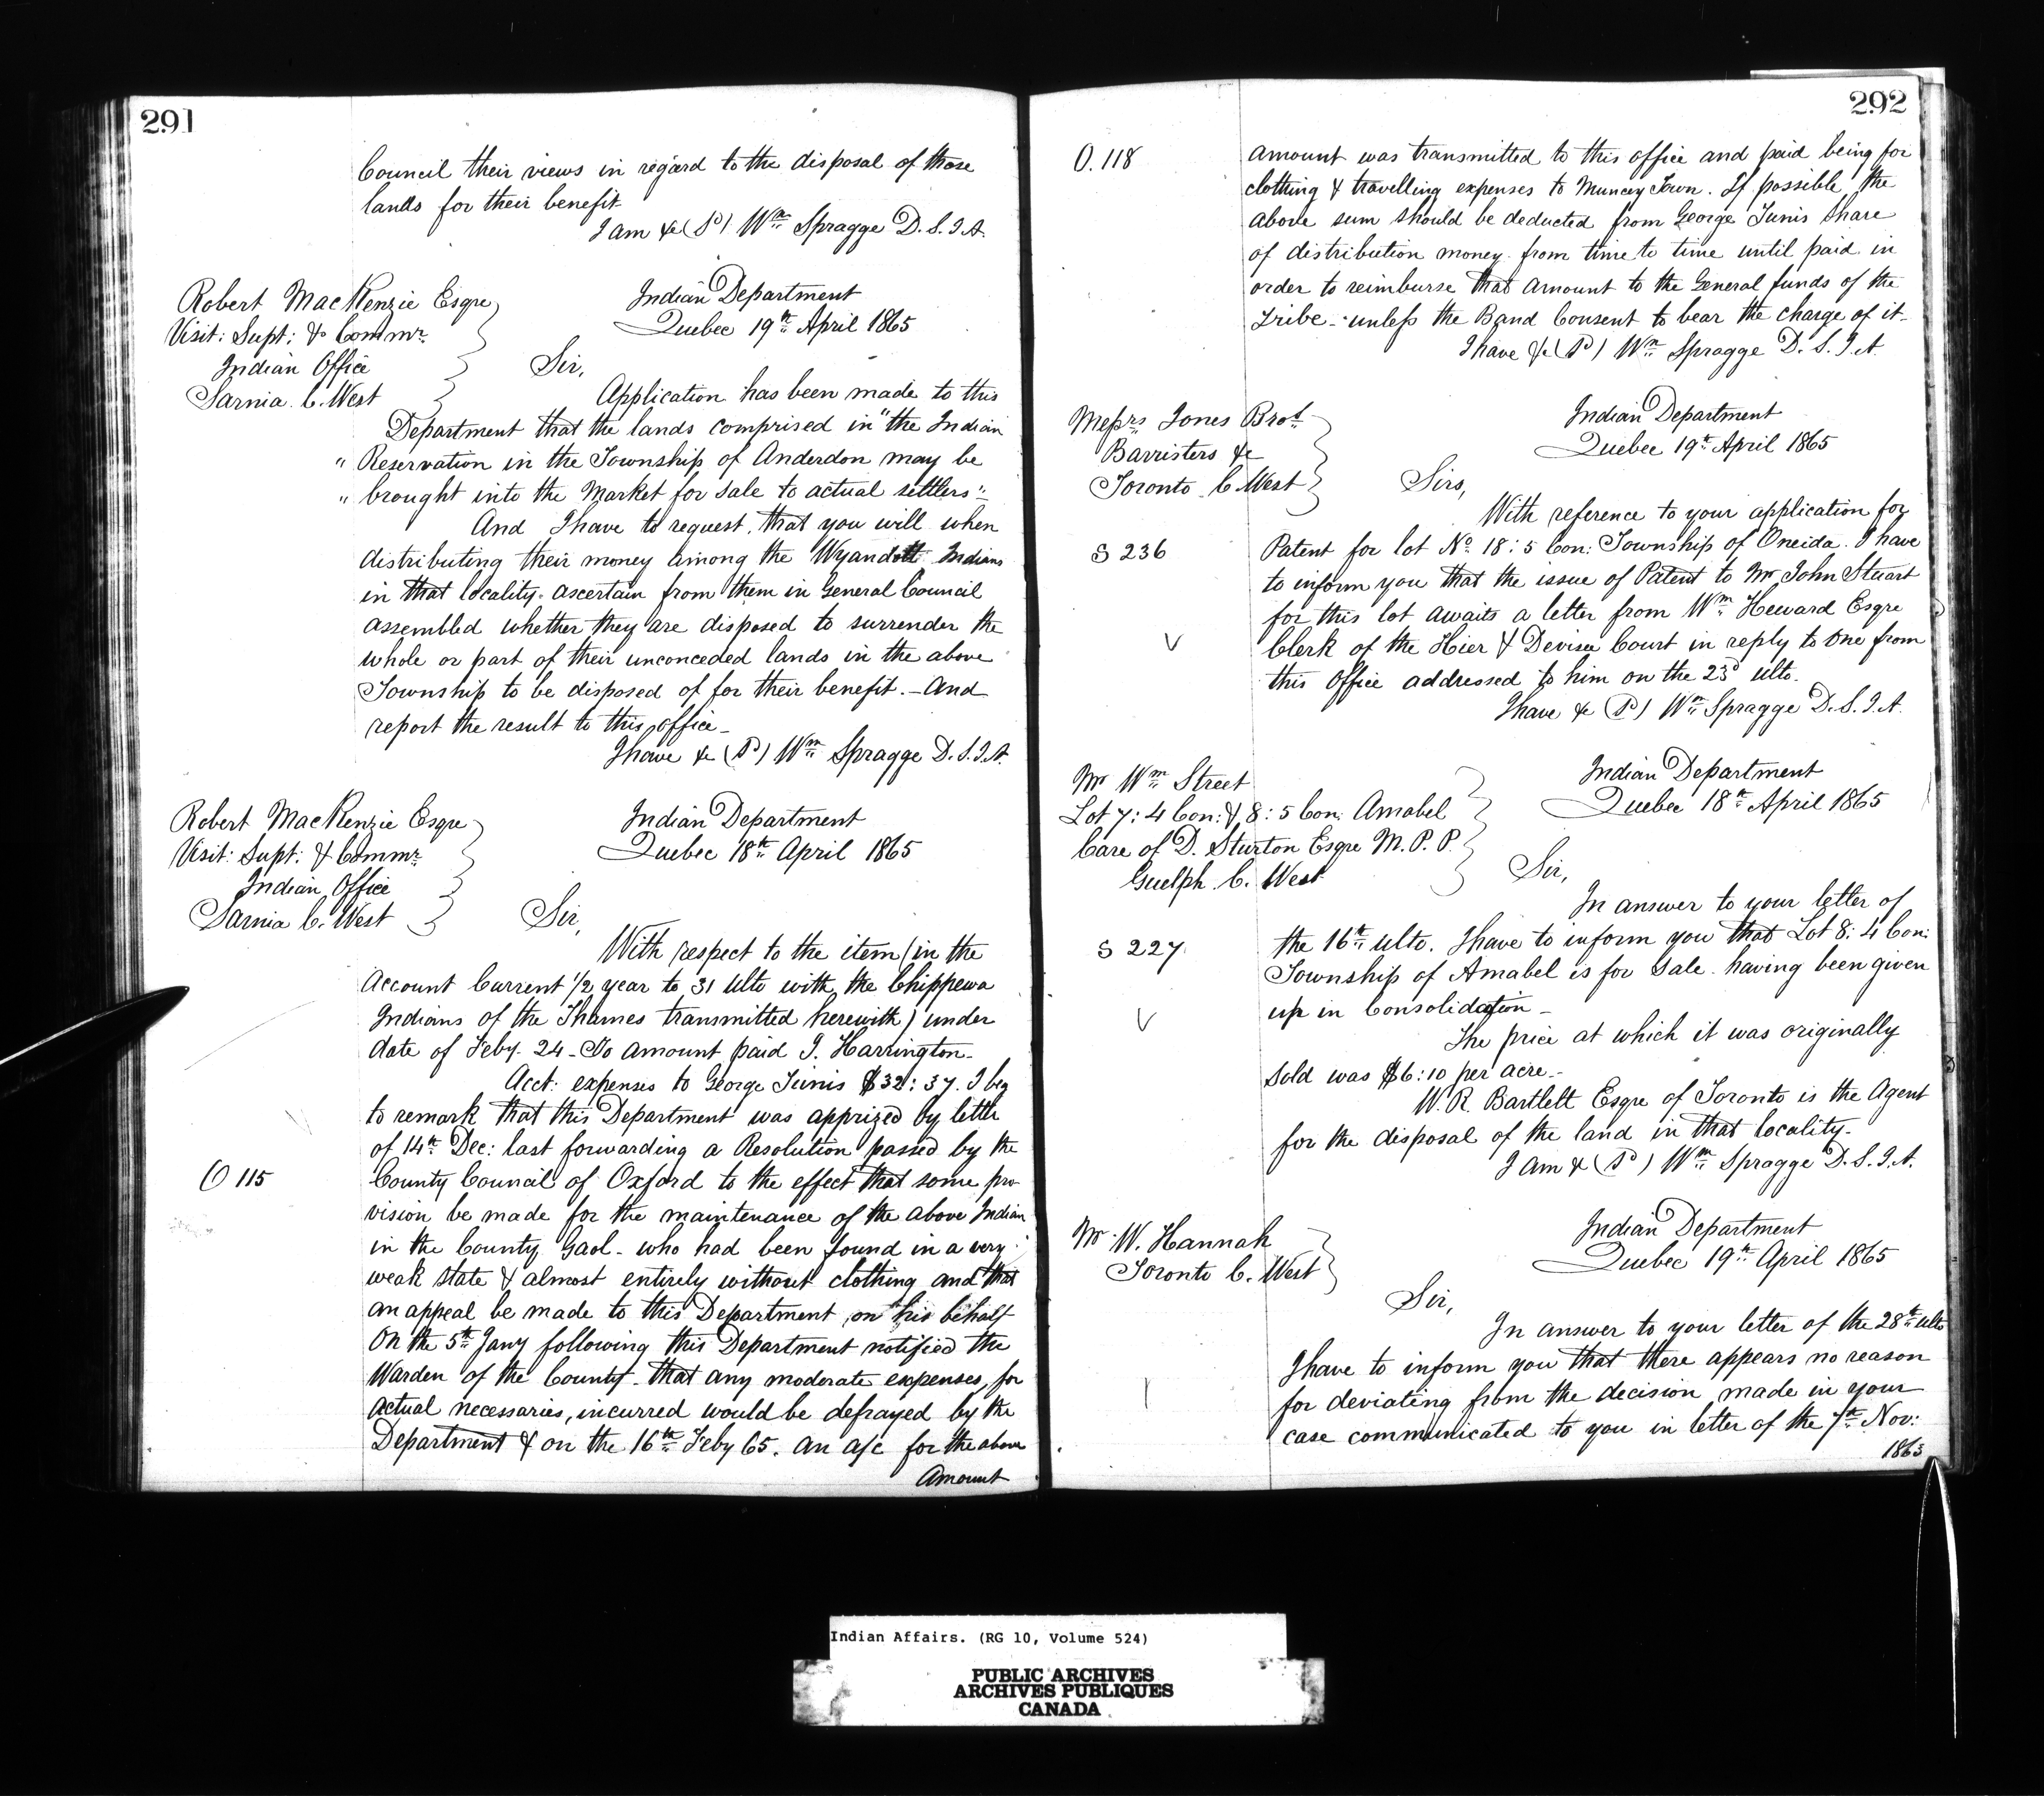 291
Council their views in regard to the disposal of those
lands for their benefit
I am &c (Sd) Wm Spragge D. S. I. A.
Robert MacKenzie Esqre
Visit: Supt: & Commr
Indian Office
Sarnia C. West
Indian Department
Quebec 19th April 1865
Sir,
Application has been made to this
Department that the lands comprised in "the Indian
" Reservation in the Township of Anderdon may be
" brought into the Market for sale to actual settlers"
And I have to request that you will when
distributing their money among the Wyandott Indians
in that locality ascertain from them in General Council
assembled whether they are disposed to surrender the
whole or part of their unconceded lands in the above
Township to be disposed of for their benefit. - And
report the result to this office_
I have &c (Sd) Wm Spragge D. S. I. A.
Robert MacKenzie Esqre
Visit: Supt: & Commr
Indian Office
Sarnia C. West
Indian Department
Quebec 18th April 1865
Sir,
With respect to the item (in the
Account Current 1/2 year to 31 Ulto with the Chippewa
Indians of the Thames transmitted herewith) under
date of Feby 24 - To amount paid J. Harrington_
Acct: expenses to George Tunis $32: 37. I beg
to remark that this Department was apprized by lette
of 14th Dec: last forwarding a Resolution passed by the
O 115
County Council of Oxford to the effect that some pro
vision be made for the maintenance of the above Indian
in the County Gaol - who had been found in a very
weak state & almost entirely without clothing and that
an appeal be made to this Department on his behalf
On the 5th Jany following this Department notified the
Warden of the County - that any moderate expenses, for
actual necessaries, incurred would be defrayed by the
Department & on the 16th Feby 65. an a/c for the above
Amount
292
O. 118
amount was transmitted to this office and paid being for
clothing & travelling expenses to Muncey Town. If possible the
above sum should be deducted from George Tunis share
of distribution money from time to time until paid in
order to reimburse that amount to the General funds of the
Tribe - unless the Band Consent to bear the charge of it -
I have &c (Sd) Wm Spragge D. S. I. A.
Messrs Jones Bros
Barristers &c
Toronto C. West
Indian Department
Quebec 19th April 1865
Sirs,
With reference to your application for
S 236
Patent for lot No 18: 5 Con: Township of Oneida. I have
to inform you that the issue of Patent to Mr John Stuart
for this lot awaits a letter from Wm Heward Esqre
V
Clerk of the Hier & Devisee Court in reply to one from
this Office addressed to him on the 23d ulto.
I have &c (Sd) Wm Spragge D. S. I. A.
Mr Wm Street
Lot 7: 4 Con: & 8: 5 Con: Amabel
Care of D. Sturton Esqre M. P. P.
Guelph C. West
Indian Department
Quebec 18th April 1865
Sir,
In answer to your letter of
S 227
the 16th ulto. I have to inform you that Lot 8: 4 Con:
Township of Amabel is for sale having been given
V
up in Consolidation_
The price at which it was originally
sold was $6:10 per acre_
W. R. Bartlett Esqre of Toronto is the Agent
for the disposal of the land in that locality_
I am &c (Sd) Wm Spragge D. S. I. A.
Mr W. Hannah
Toronto C. West
Indian Department
Quebec 19th April 1865
Sir,
In answer to your letter of the 28th ulto
I have to inform you that there appears no reason
for deviating from the decision made in your
case communicated to you in letter of the 7th Nov:
1863
Indian Affairs. (RG 10, Volume 524)
PUBLIC ARCHIVES
ARCHIVES PUBLIQUES
CANADA